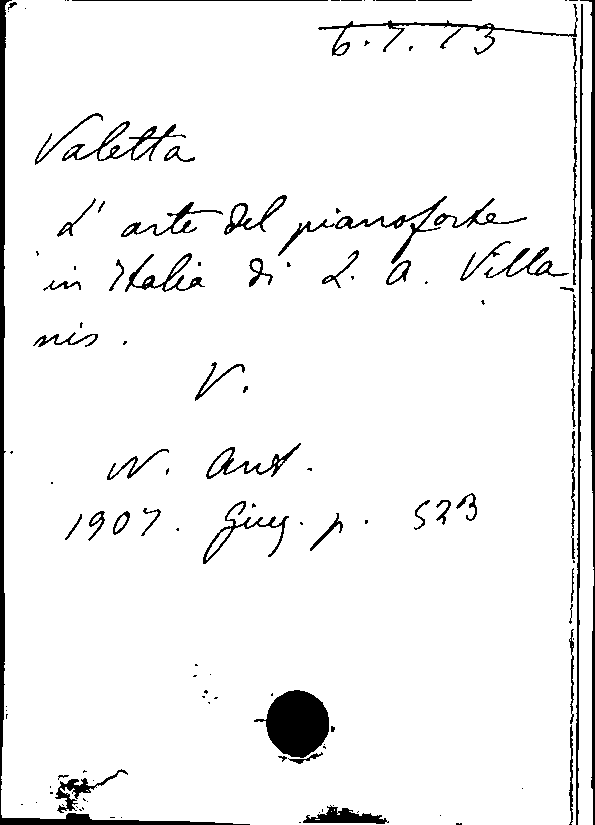 6.7.73
Valetta
L' arte del pianoforte
in Italia di L. A. Villa_
nis.
V.
N. Ant.
1907. Giug. p. 523